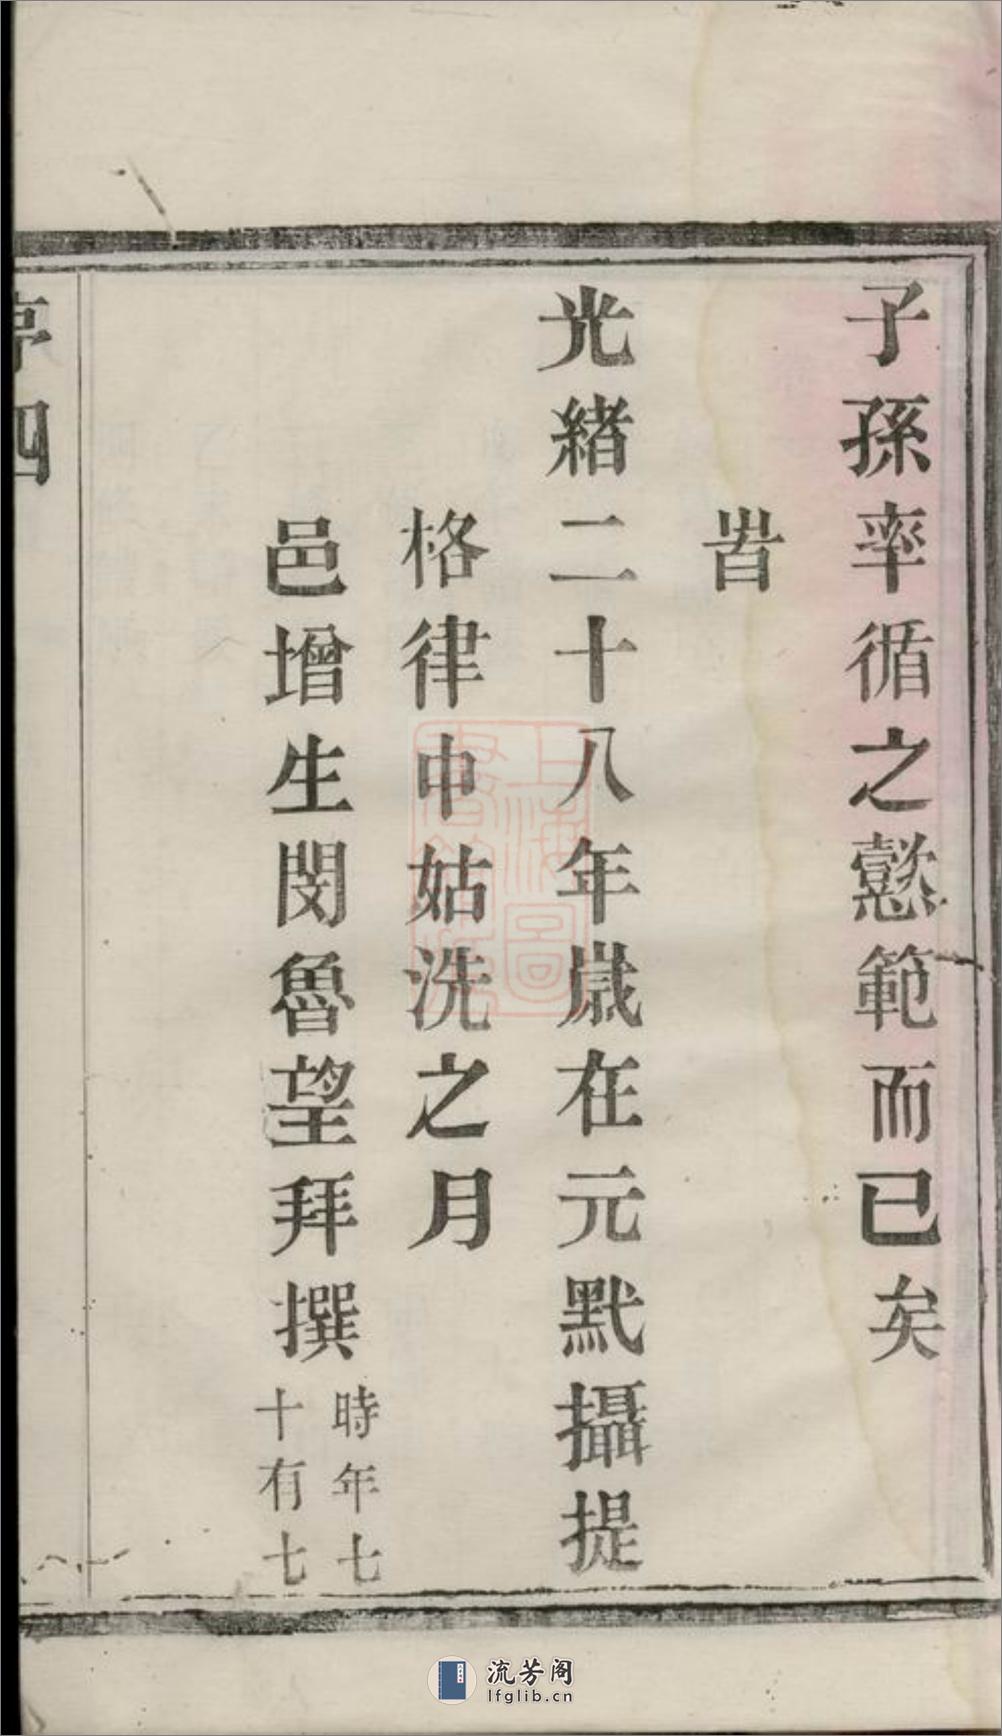 子孫率循之懿範而已矣
旹
光緒二十八年歲在元黓攝提
格律中姑洗之月
邑增生閔魯望拜撰
時年七
十有七
序四
上海圖
書館藏
流芳阁
lfglib.cn